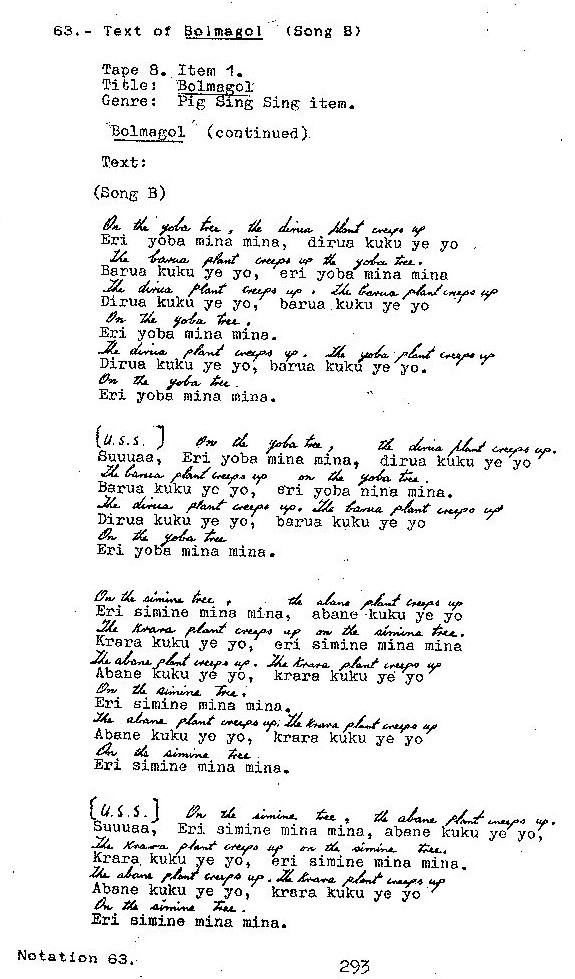 63.- Text of Bolmagol (Song B)
Tape 8. Item 1.
Title: Bolmagol
Genre: Pig Sing Sing item.
"Bolmagol" (continued)
Text:
(Song B)
On the yoba tree, the dirua plant creeps up
Eri yoba mina mina, dirua kuku ye yo
The barua plant creeps up the yoba tree.
Barua kuku ye yo, eri yoba mina mina
The dirua plant creeps up. The barua plant creeps up
Dirua kuku ye yo, barua kuku ye yo
On the yoba tree.
Eri yoba mina mina.
The dirua plant creeps up. The yoba plant creeps up
Dirua kuku ye yo, barua kuku ye yo.
On the yoba tree.
Eri yoba mina mina.
[U.S.S.] On the yoba tree, the dirua plant creeps up.
Suuuaa, Eri yoba mina mina, dirua kuku ye yo
The barua plant creeps up on the yoba tree.
Barua kuku ye yo, eri yoba nina mina.
The dirua plant creeps up. The barua plant creeps up
Dirua kuku ye yo, barua kuku ye yo
On the yoba tree
Eri yoba mina mina.
On the simine tree, the abane plant creeps up
Eri simine mina mina, abane kuku ye yo
The Krara plant creeps up on the simine tree.
Krara kuku ye yo, eri simine mina mina
The abane plant creeps up. The Krara plant creeps up
Abane kuku ye yo, krara kuku ye yo
On the simine tree.
Eri simine mina mina.
The abane plant creeps up. The Krara plant creeps up
Abane kuku ye yo, krara kuku ye yo
On the simine tree
Eri simine mina mina.
[U.S.S.] On the simine tree, the abane plant creeps up.
Suuuaa, Eri simine mina mina, abane kuku ye yo,
The Krara plant creeps up on the simine tree.
Krara kuku ye yo, eri simine mina mina.
The abane plant creeps up. The Krara plant creeps up
Abane kuku ye yo, krara kuku ye yo
On the simine tree.
Eri simine mina mina.
Notation 63.
293